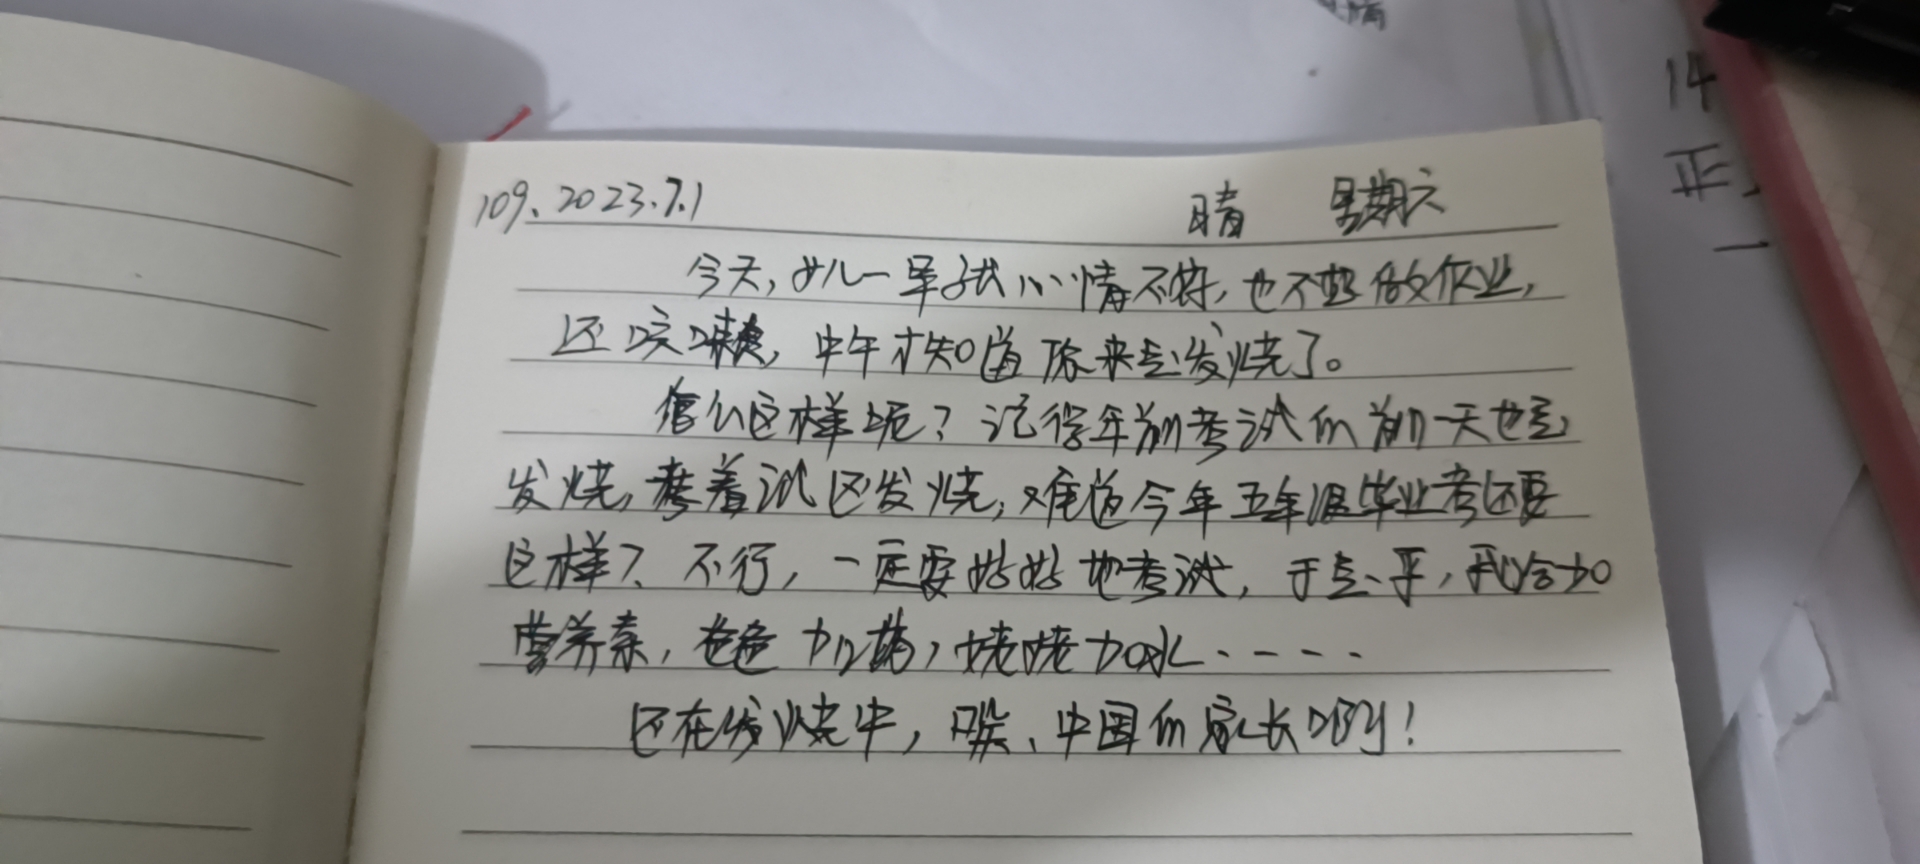 109. 2023.7.1 晴 星期六
今天,女儿一早就心情不好,也不想做作业,
还咳嗽,中午才知道原来是发烧了。
怎么这样呢?记得年前考试的前一天也是
发烧,考着试还发烧,难道今年五年级毕业考还要
这样?不行,一定要好好地考试,于是乎,我给加
营养素,爸爸加药,姥姥加水.----
还在发烧中,唉、中国的家长啊!
14
正
一